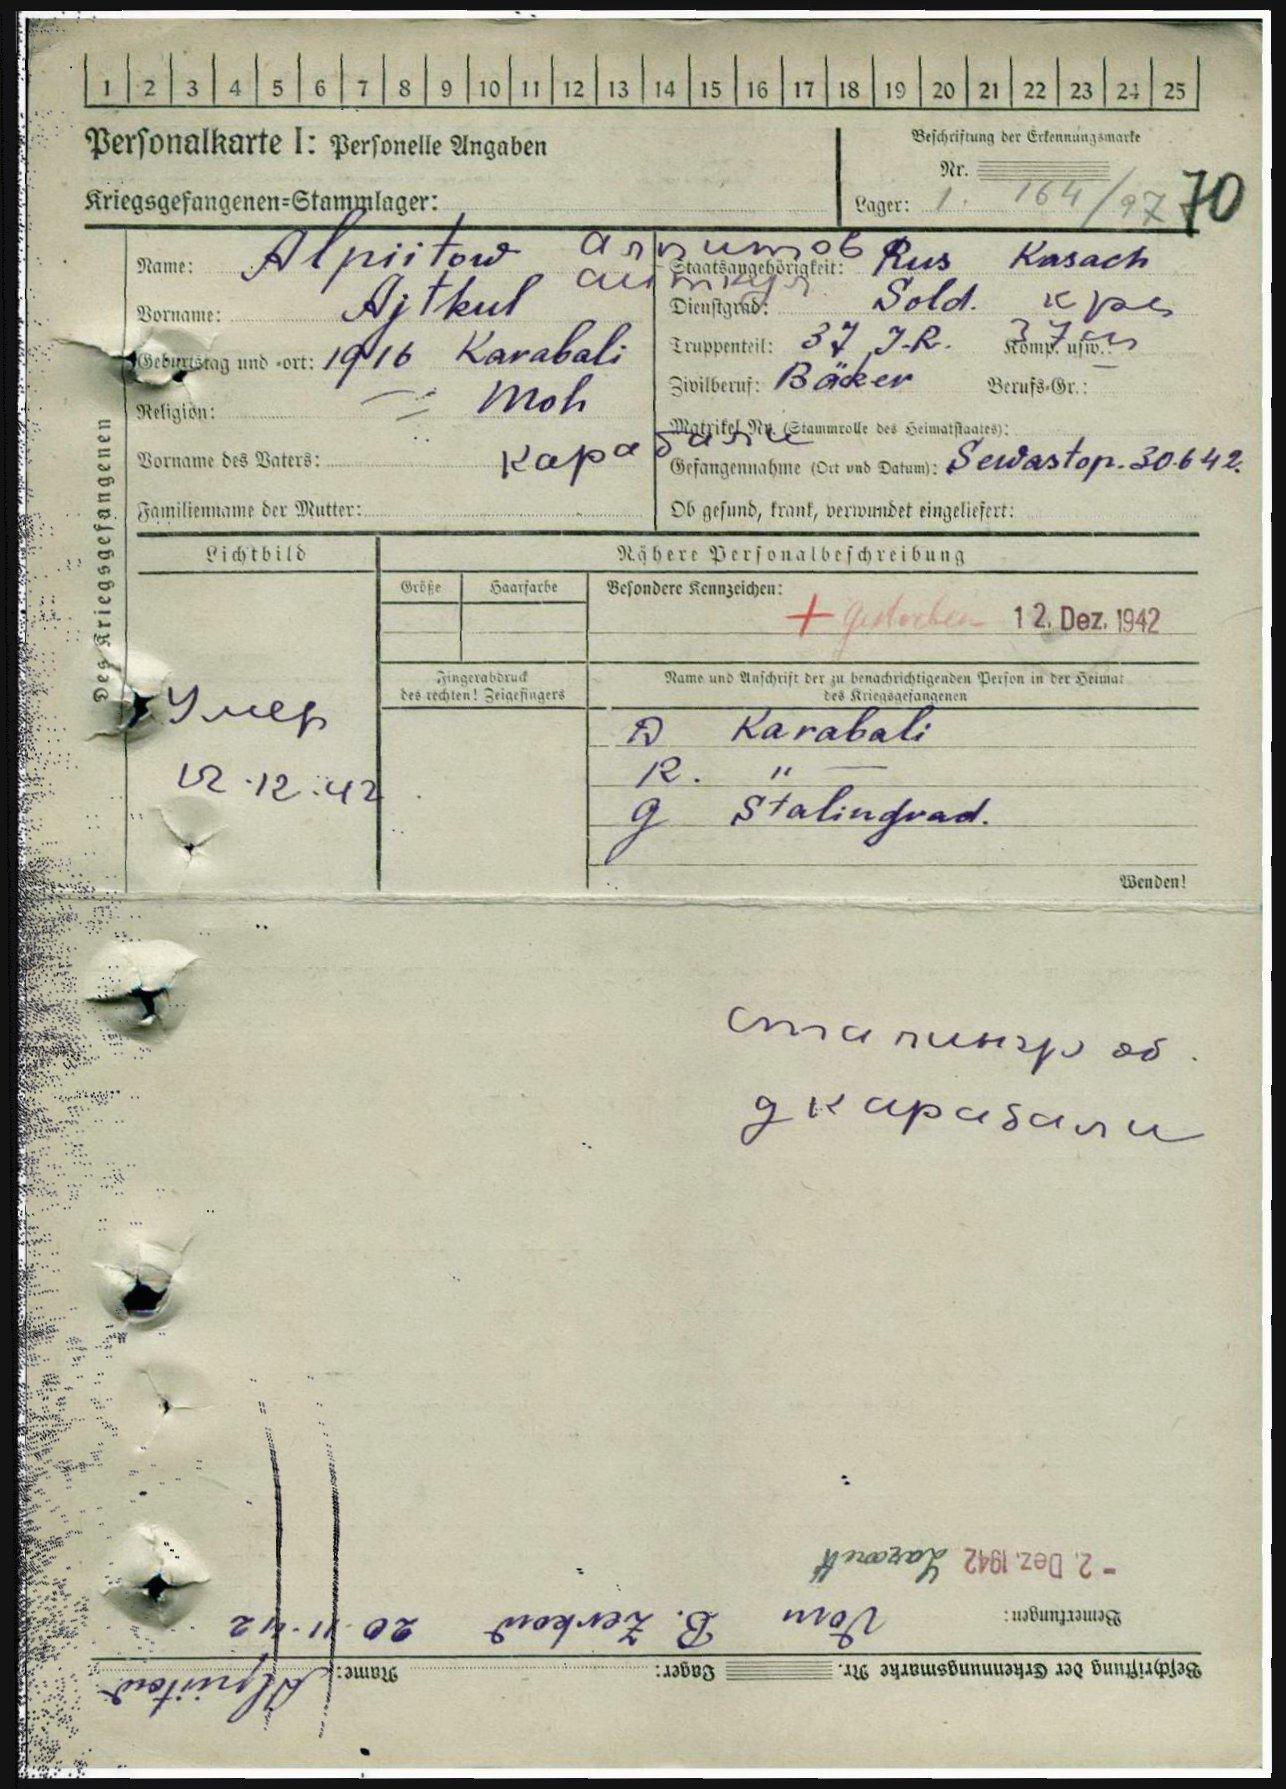 1 2 3 4 5 6 7 8 9 10 11 12 13 14 15 16 17 18 19 20 21 22 23 24 25
Personalkarte I: Personelle Angaben
Beschriftung der Erkennungsmarke
Nr.
Kriegsgefangenen=Stammlager:
Lager: 1. 164/97 70
Des Kriegsgefangenen
Name: Alpiitow Алпитов
Vorname: Ajtkul
Geburtstag und =ort: 1916 Karabali
Religion: Moh
Vorname des Vaters:
Карабали
Familienname der Mutter:
Staatsangehörigkeit: Rus Kasach
Dienstgrad: Sold. кра
Truppenteil: 37 J.R. Komp. usw.: 37
Zivilberuf: Bäcker Berufs=Gr.: –
Matrikel Nr. (Stammrolle des Heimatstaates):
Gefangennahme (Ort und Datum): Sewastop. 30.6 42.
Ob gesund, krank, verwundet eingeliefert:
Lichtbild
Nähere Personalbeschreibung
Größe Haarfarbe Besondere Kennzeichen:
+ gestorben 12. Dez. 1942
Fingerabdruck
des rechten! Zeigefingers
Name und Anschrift der zu benachrichtigenden Person in der Heimat
des Kriegsgefangenen
Умер
12.12.42
D Karabali
R. " —
G Stalingrad.
Wenden!
сталингр об.
д карабали
Beschriftung der Erkennungsmarke Nr. Lager: Name: Alpiitow
Bemerkungen: Vom B. Zerkow 20.11.42
- 2. Dez. 1942 Lazarett